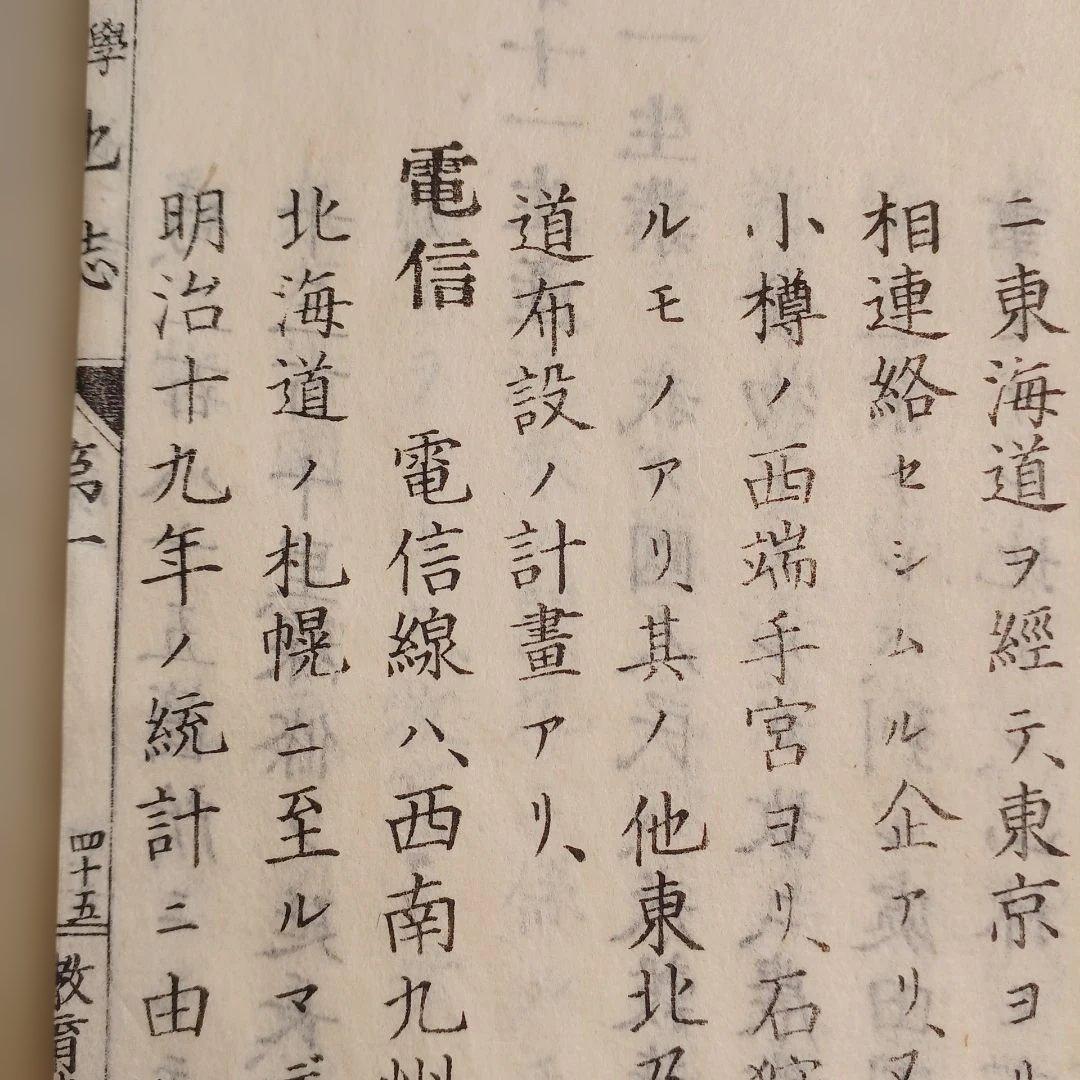 ニ東海道ヲ經テ、東京ヨ
相連絡セシムル企アリ、又
小樽ノ西端手宮ヨリ、石狩
ルモノアリ、其ノ他東北乃
道布設ノ計畫アリ、
電信 電信線ハ、西南九州
北海道ノ札幌ニ至ルマデ
明治十九年ノ統計ニ由
學地志 第一 四十五 教育